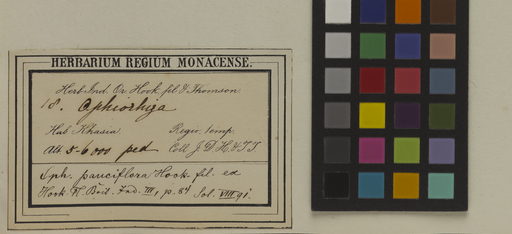 HERBARIUM REGIUM MONACENSE.
Herb. Ind. Or. Hook. fil. & Thomson.
18. Ophiorhiza
Hab. Khasia Regio temp.
Alt. 5-6000 ped Coll. J.D.H. & T.T.
Oph. pauciflora Hook. fil. ex
Hook. Fl. Brit. Ind. III, p. 84 Sol. VIII 91.